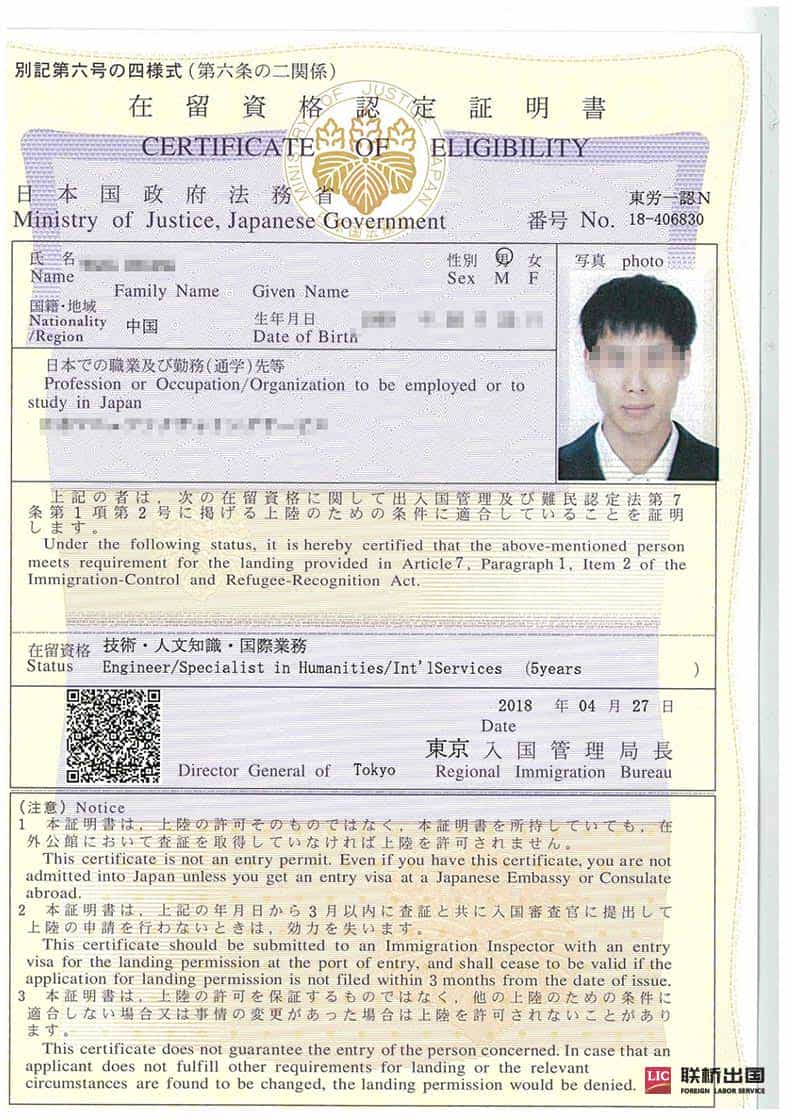 別記第六号の四様式(第六条の二関係)
在留資格認定証明書
CERTIFICATE OF ELIGIBILITY
日本国政府法務省
Ministry of Justice, Japanese Government
東労一認N
番号 No. 18-406830
氏名
Name
Family Name Given Name
性別 男 女
Sex M F
写真 photo
国籍・地域
Nationality
/Region
中国
生年月日
Date of Birth
日本での職業及び勤務(通学)先等
Profession or Occupation/Organization to be employed or to
study in Japan
上記の者は, 次の在留資格に関して出入国管理及び難民認定法第7
条第1項第2号に掲げる上陸のための条件に適合していることを証明
します。
Under the following status, it is hereby certified that the above-mentioned person
meets requirement for the landing provided in Article 7, Paragraph 1, Item 2 of the
Immigration-Control and Refugee-Recognition Act.
在留資格 技術・人文知識・国際業務
Status Engineer/Specialist in Humanities/Int'lServices (5years )
2018 年 04 月 27 日
Date
東京 入国管理局長
Director General of Tokyo Regional Immigration Bureau
(注意) Notice
1 本証明書は, 上陸の許可そのものではなく, 本証明書を所持していても, 在
外公館において査証を取得していなければ上陸を許可されません。
This certificate is not an entry permit. Even if you have this certificate, you are not
admitted into Japan unless you get an entry visa at a Japanese Embassy or Consulate
abroad.
2 本証明書は, 上記の年月日から3月以内に査証と共に入国審査官に提出して
上陸の申請を行わないときは, 効力を失います。
This certificate should be submitted to an Immigration Inspector with an entry
visa for the landing permission at the port of entry, and shall cease to be valid if the
application for landing permission is not filed within 3 months from the date of issue.
3 本証明書は, 上陸の許可を保証するものではなく, 他の上陸のための条件に
適合しない場合又は事情の変更があった場合は上陸を許可されないことがあり
ます。
This certificate does not guarantee the entry of the person concerned. In case that an
applicant does not fulfill other requirements for landing or the relevant
circumstances are found to be changed, the landing permission would be denied.
LIC 联桥出国
FOREIGN LABOR SERVICE